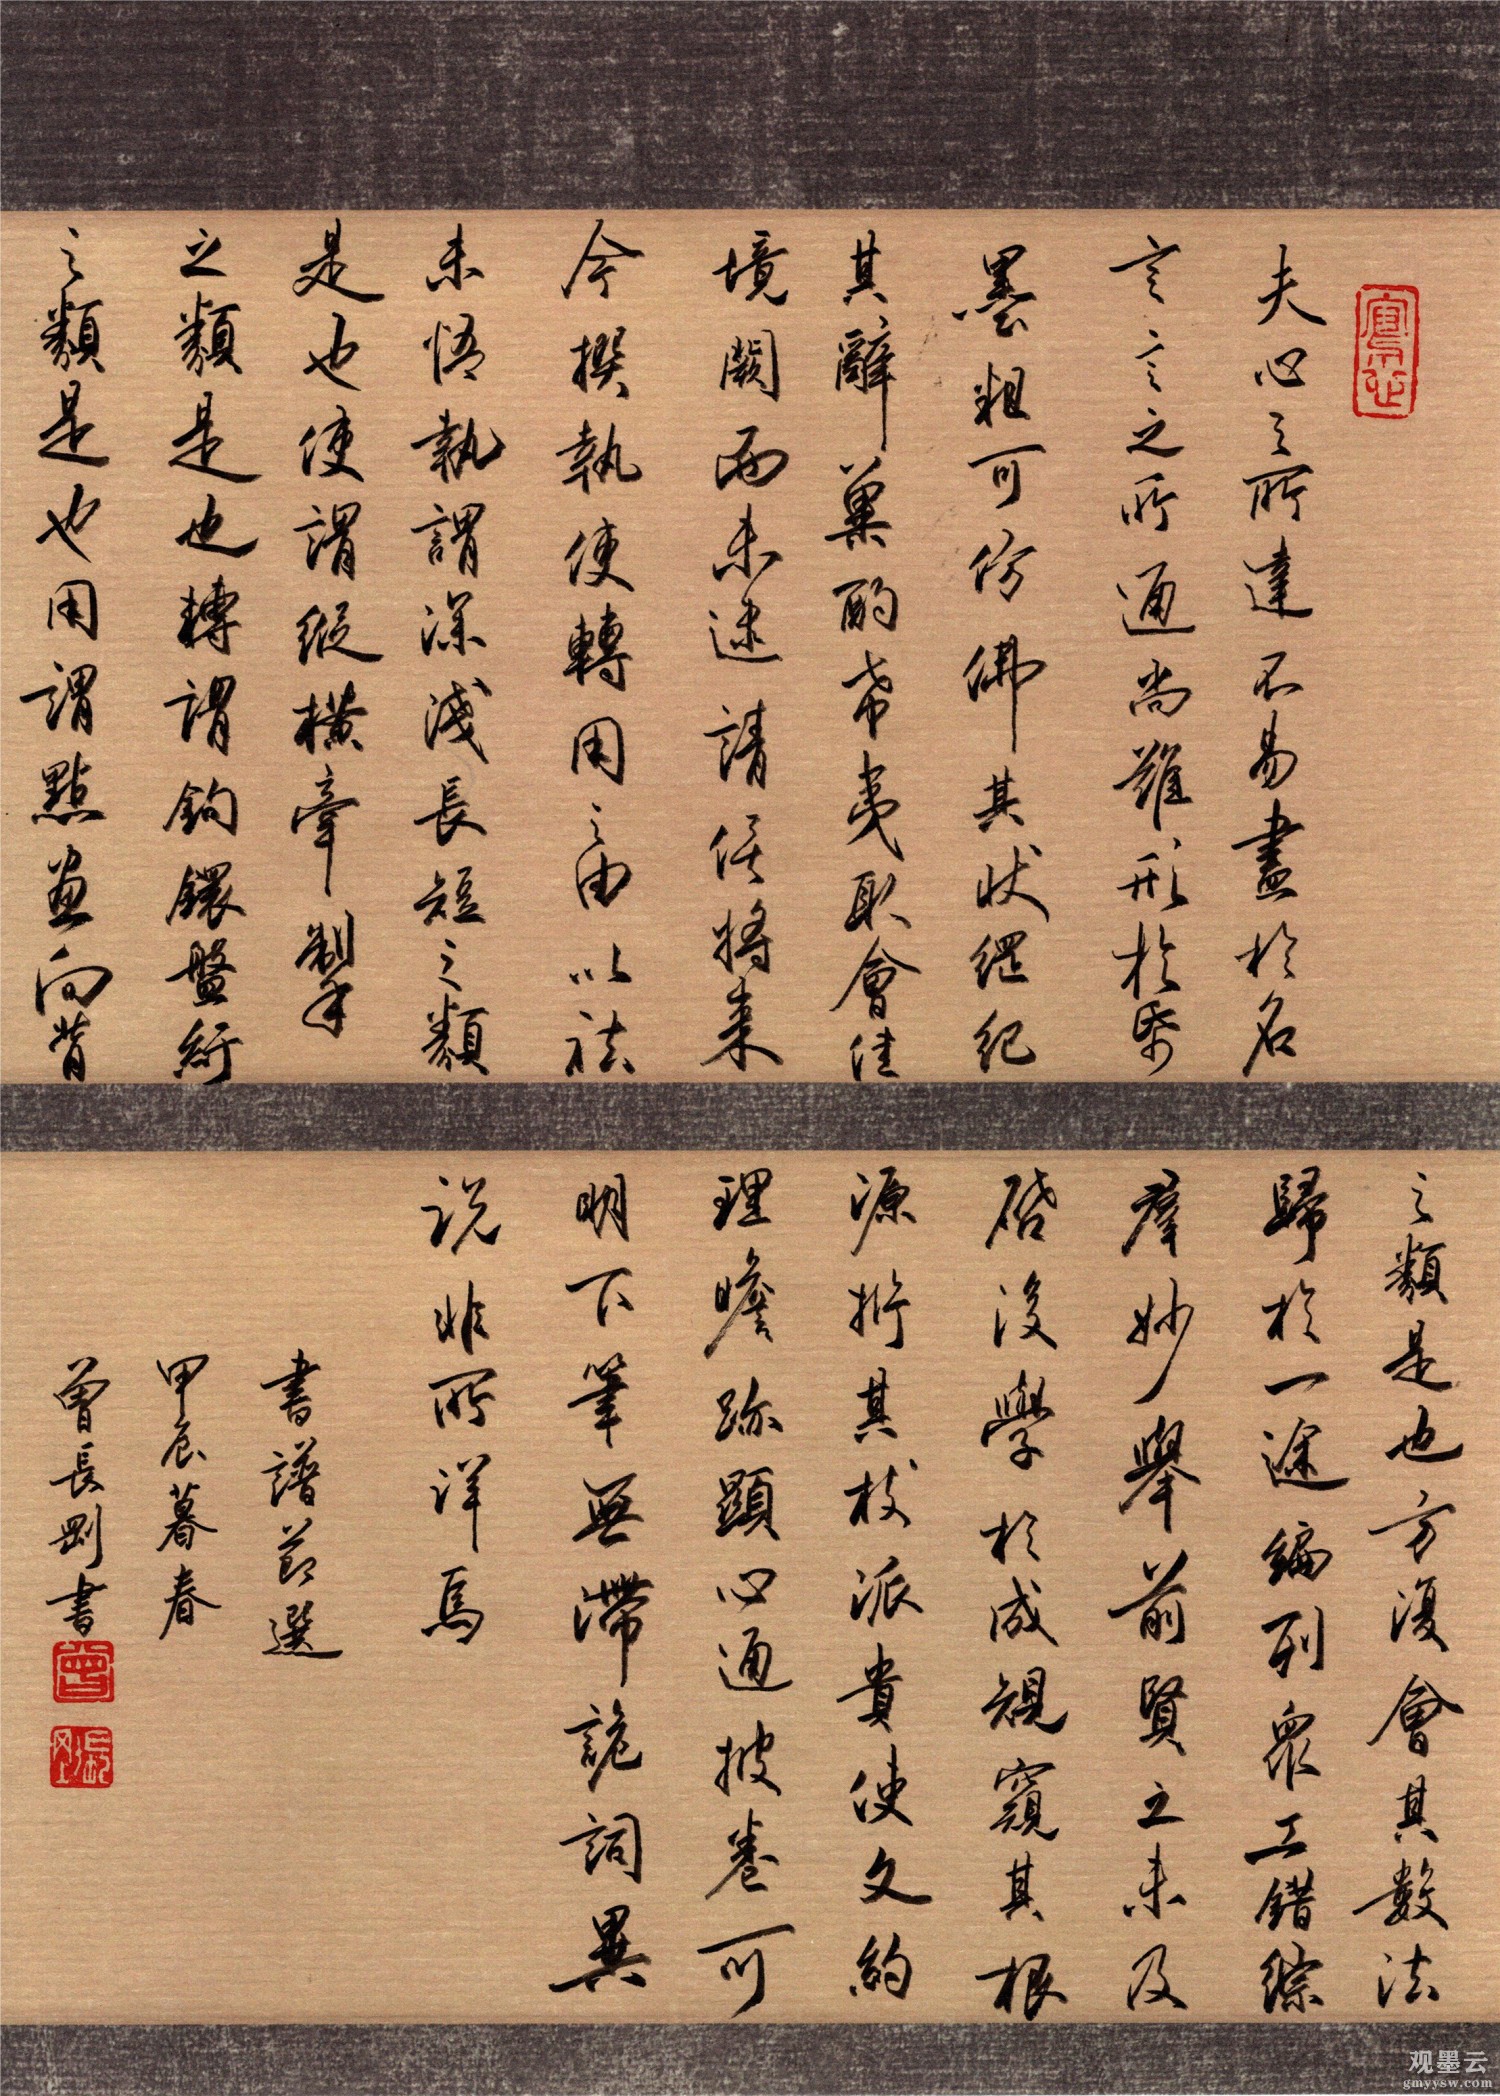 夫心之所達不易盡於名
言言之所通尚難形於帋
墨粗可仿佛其狀綱紀
其辭冀酌希夷取會佳
境闕而未逮請俟將來
今撰執使轉用之由以祛
未悟執謂深淺長短之類
是也使謂縱橫牽掣
之類是也轉謂鉤鐶盤紆
之類是也用謂點畫向背
之類是也方復會其數法
歸於一途編列眾工錯綜
羣妙舉前賢之未及
啓後學於成規窺其根
源析其枝派貴使文約
理贍跡顯心通披卷可
明下筆無滯詭詞異
説非所詳焉
書譜節選
甲辰暮春
曾長剛書
曾
观墨云
gmyysw.com